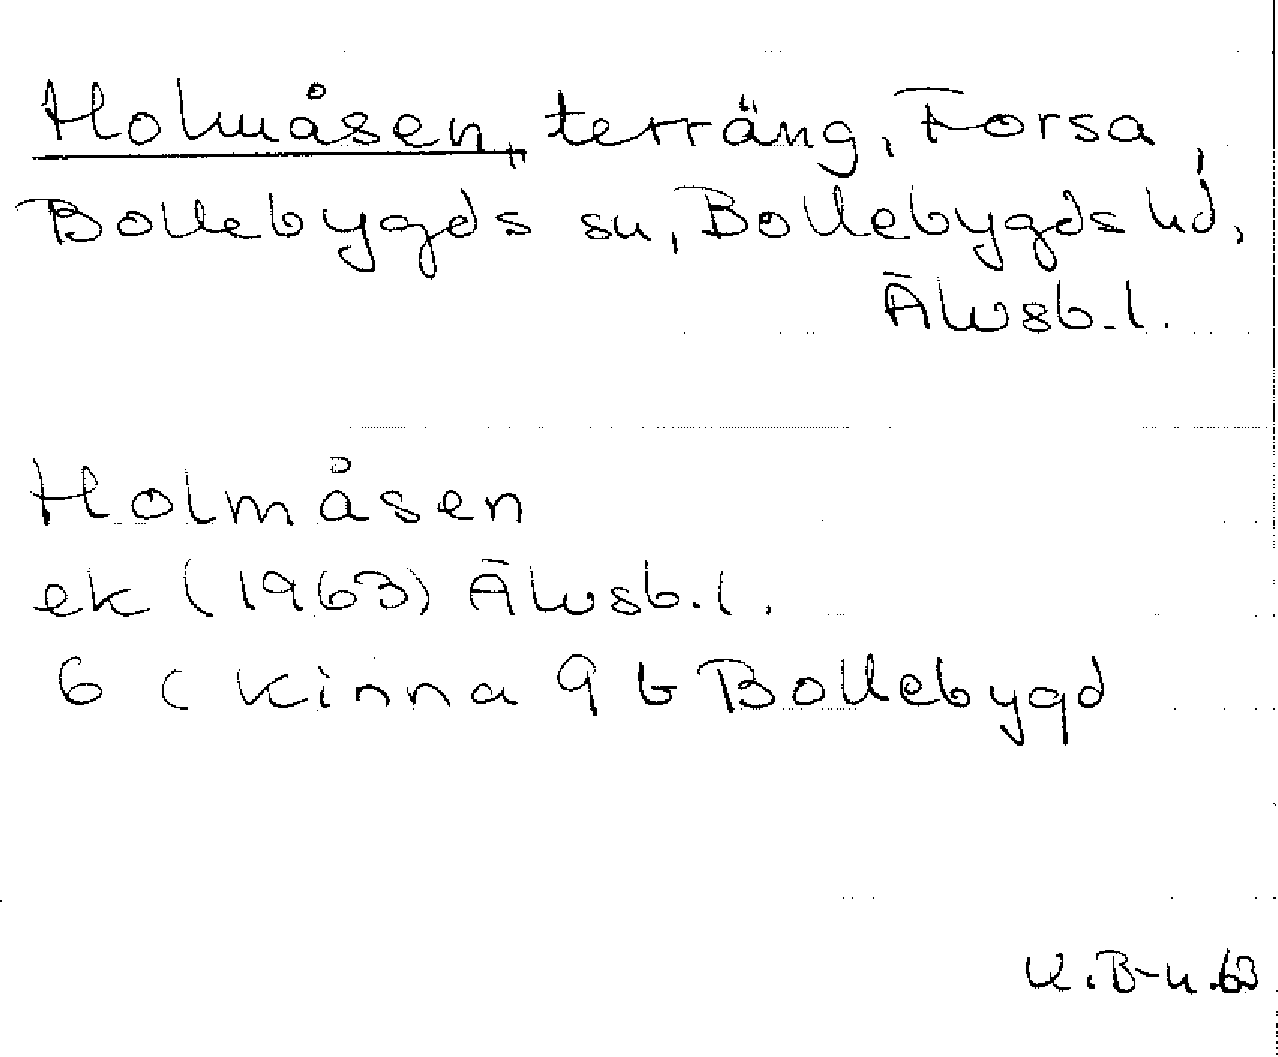 Holmåsen, terräng, Forsa,
Bollebygds sn, Bollebygds hd,
Älvsb. l.
Holmåsen
ek (1963) Älvsb. l.
6 C Kinna 9 b Bollebygd
K. B-n. 63